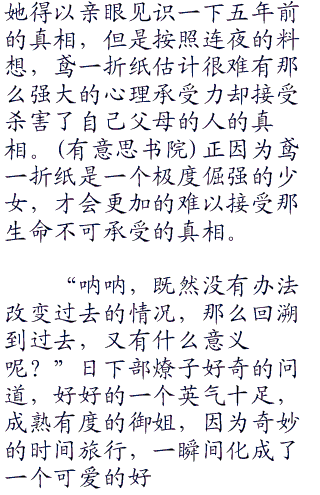 她得以亲眼见识一下五年前
的真相，但是按照连夜的料
想，鸢一折纸估计很难有那
么强大的心理承受力却接受
杀害了自己父母的人的真
相。(有意思书院)正因为鸢
一折纸是一个极度倔强的少
女，才会更加的难以接受那
生命不可承受的真相。
“呐呐，既然没有办法
改变过去的情况，那么回溯
到过去，又有什么意义
呢？”日下部燎子好奇的问
道，好好的一个英气十足，
成熟有度的御姐，因为奇妙
的时间旅行，一瞬间化成了
一个可爱的好